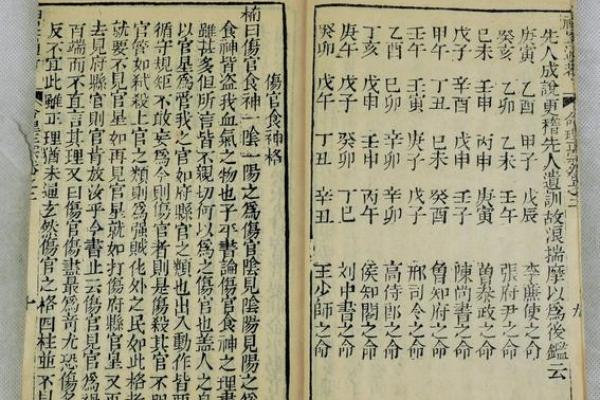 先人成說更籍先人遺訓故浪揣摩以為後鑑云
庚寅 乙酉 甲子 戊辰 李廉使之命
癸亥 乙卯 乙未 壬午 張府尹之命
己未 壬申 丙申 庚寅 曾泰政之命
戊子 辛酉 戊申 壬子 陳尚書之命
甲午 丁丑 壬午 魯知府之命
壬子 甲午 戊子 邢司令之命
乙酉 己卯 辛卯 辛卯 高侍郎之命
丁亥 戊申 丙午 侯知閣之命
庚午 壬午 癸卯 丁巳 刘中書之命
癸卯 戊午 丁丑 辛丑 王少師之命
傷官食神格
楠曰傷官食神一陰一陽之為傷官陰見陰陽見陽之為
食神皆盜我血氣之物也子平書論傷官食神之理書
雖甚多但所言皆不親切何以為之傷官也蓋人之身
以官星為管我之官如府縣官之類也出入動作皆要
循守規矩不敢妄為今則傷官者則是傷殺其官不
官管如弒殺上官之類則為強賊化外之民如此格者
就要不見官星如再見官星就如打傷府縣官又再
去見府縣官則官肯放汝乎今書止云傷官見官為禍
百端而不直言其理又曰傷官傷盡最為奇尤恐傷多
反不宜此雖正理猶未通玄然傷官之格四柱並不見